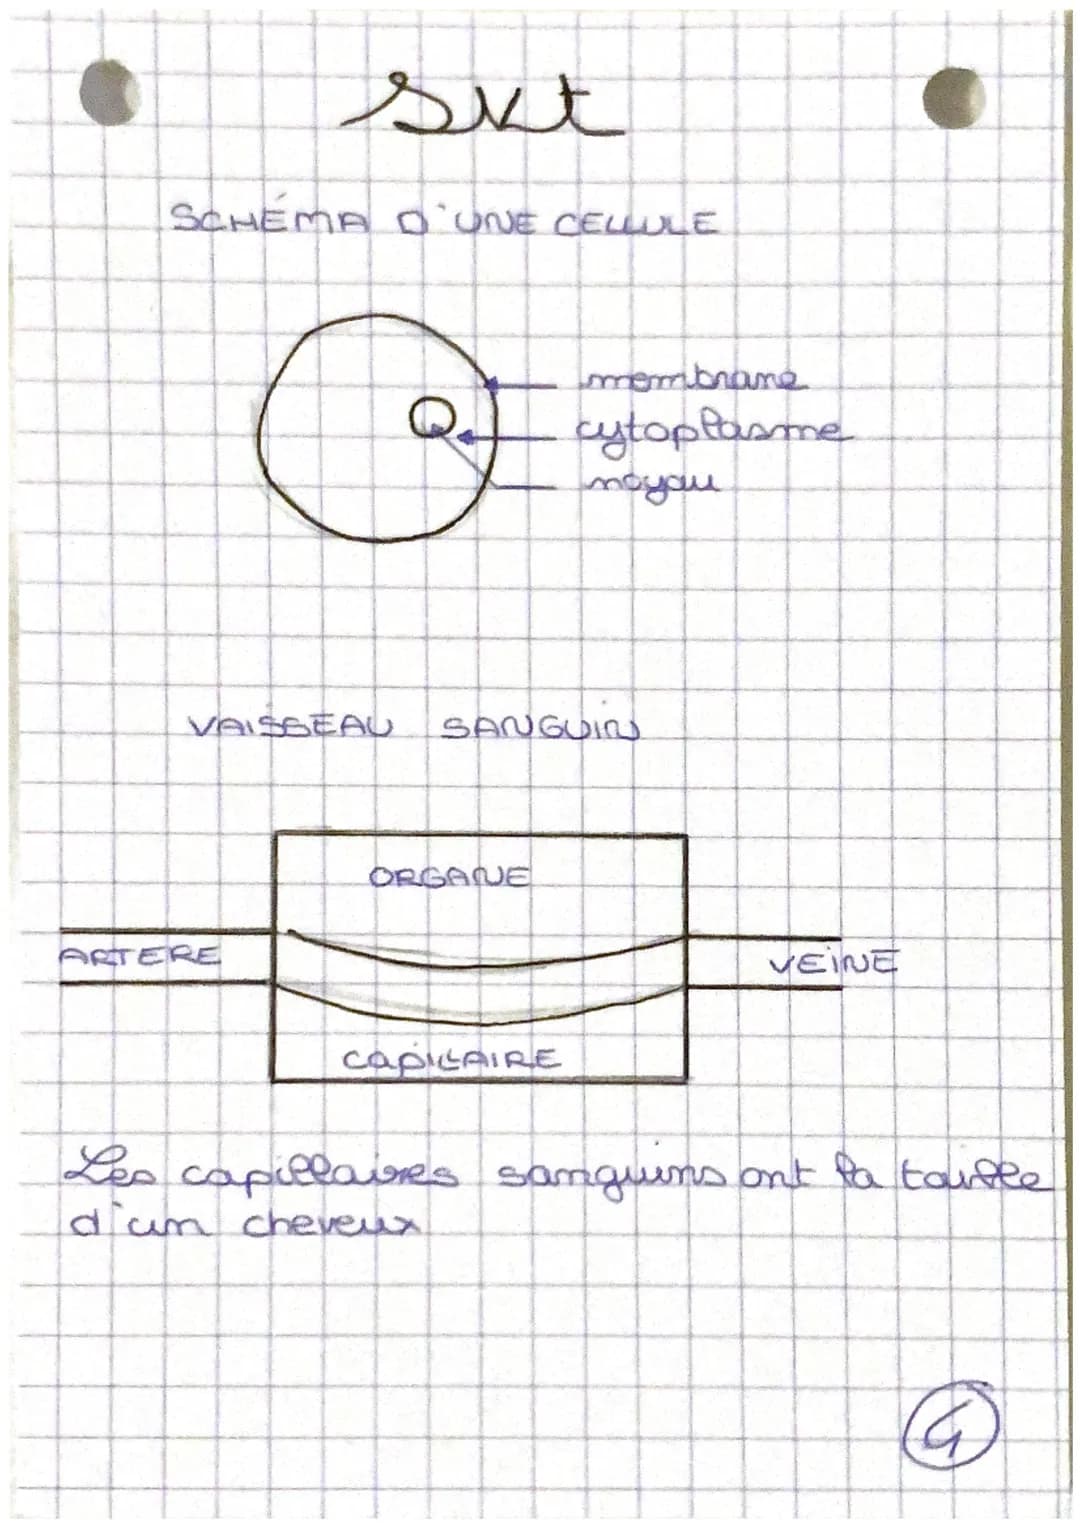 svt
SCHÉMA D'UNE CELLULE
membrane
cytoplasme
noyau
VAISSEAU SANGUIN
ORGANE
ARTERE
VEINE
CAPILLAIRE
Les capillaires sanguins ont la taille
d'un cheveux
4